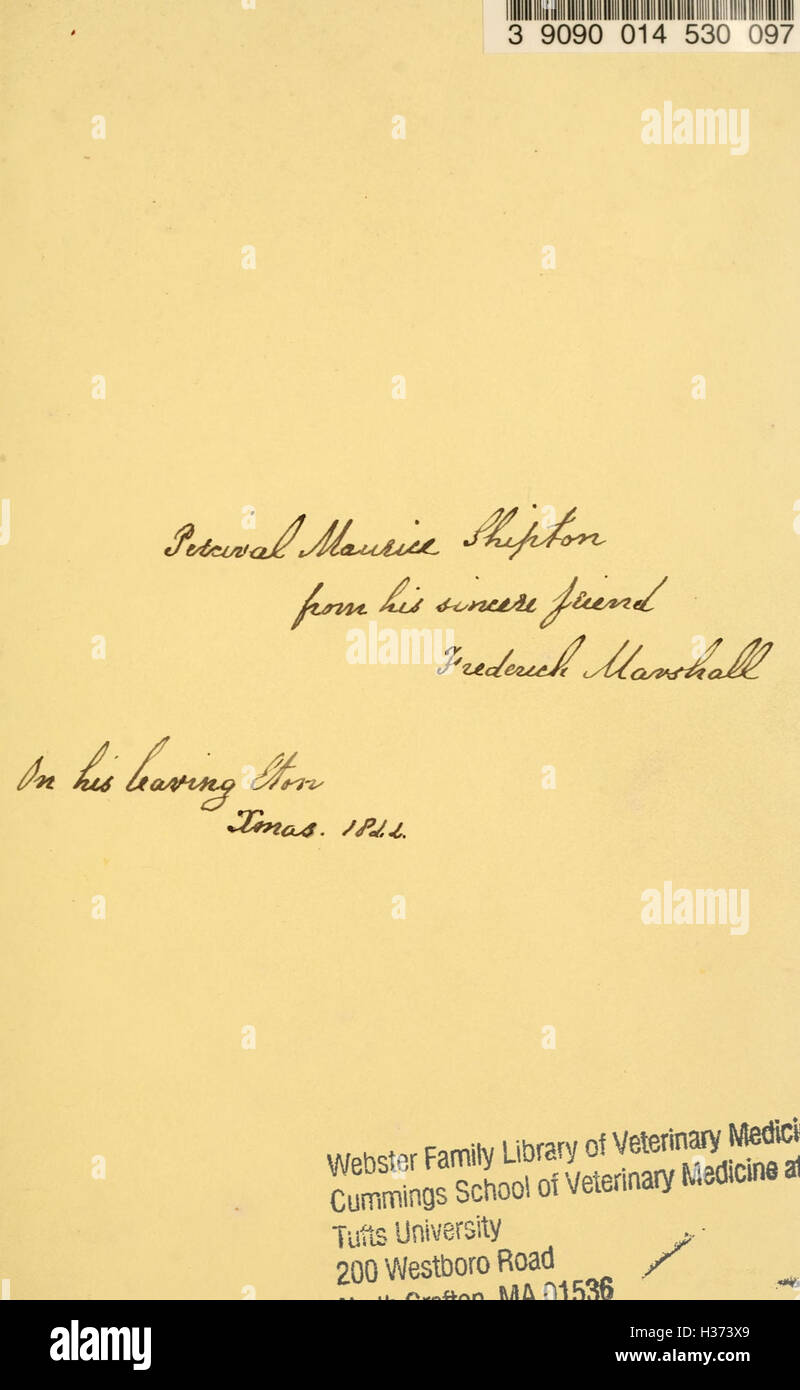 3 9090 014 530 097
Percival Maurice Shipton
from his sincere friend
Frederick Marshall
On his leaving Eton
Xmas.
Webster Family Library of Veterinary
Cummings School of Veterinary Medicine at
Tufts University
200 Westboro Road
MA 01536
alamy
Image ID: H373X9
www.alamy.com